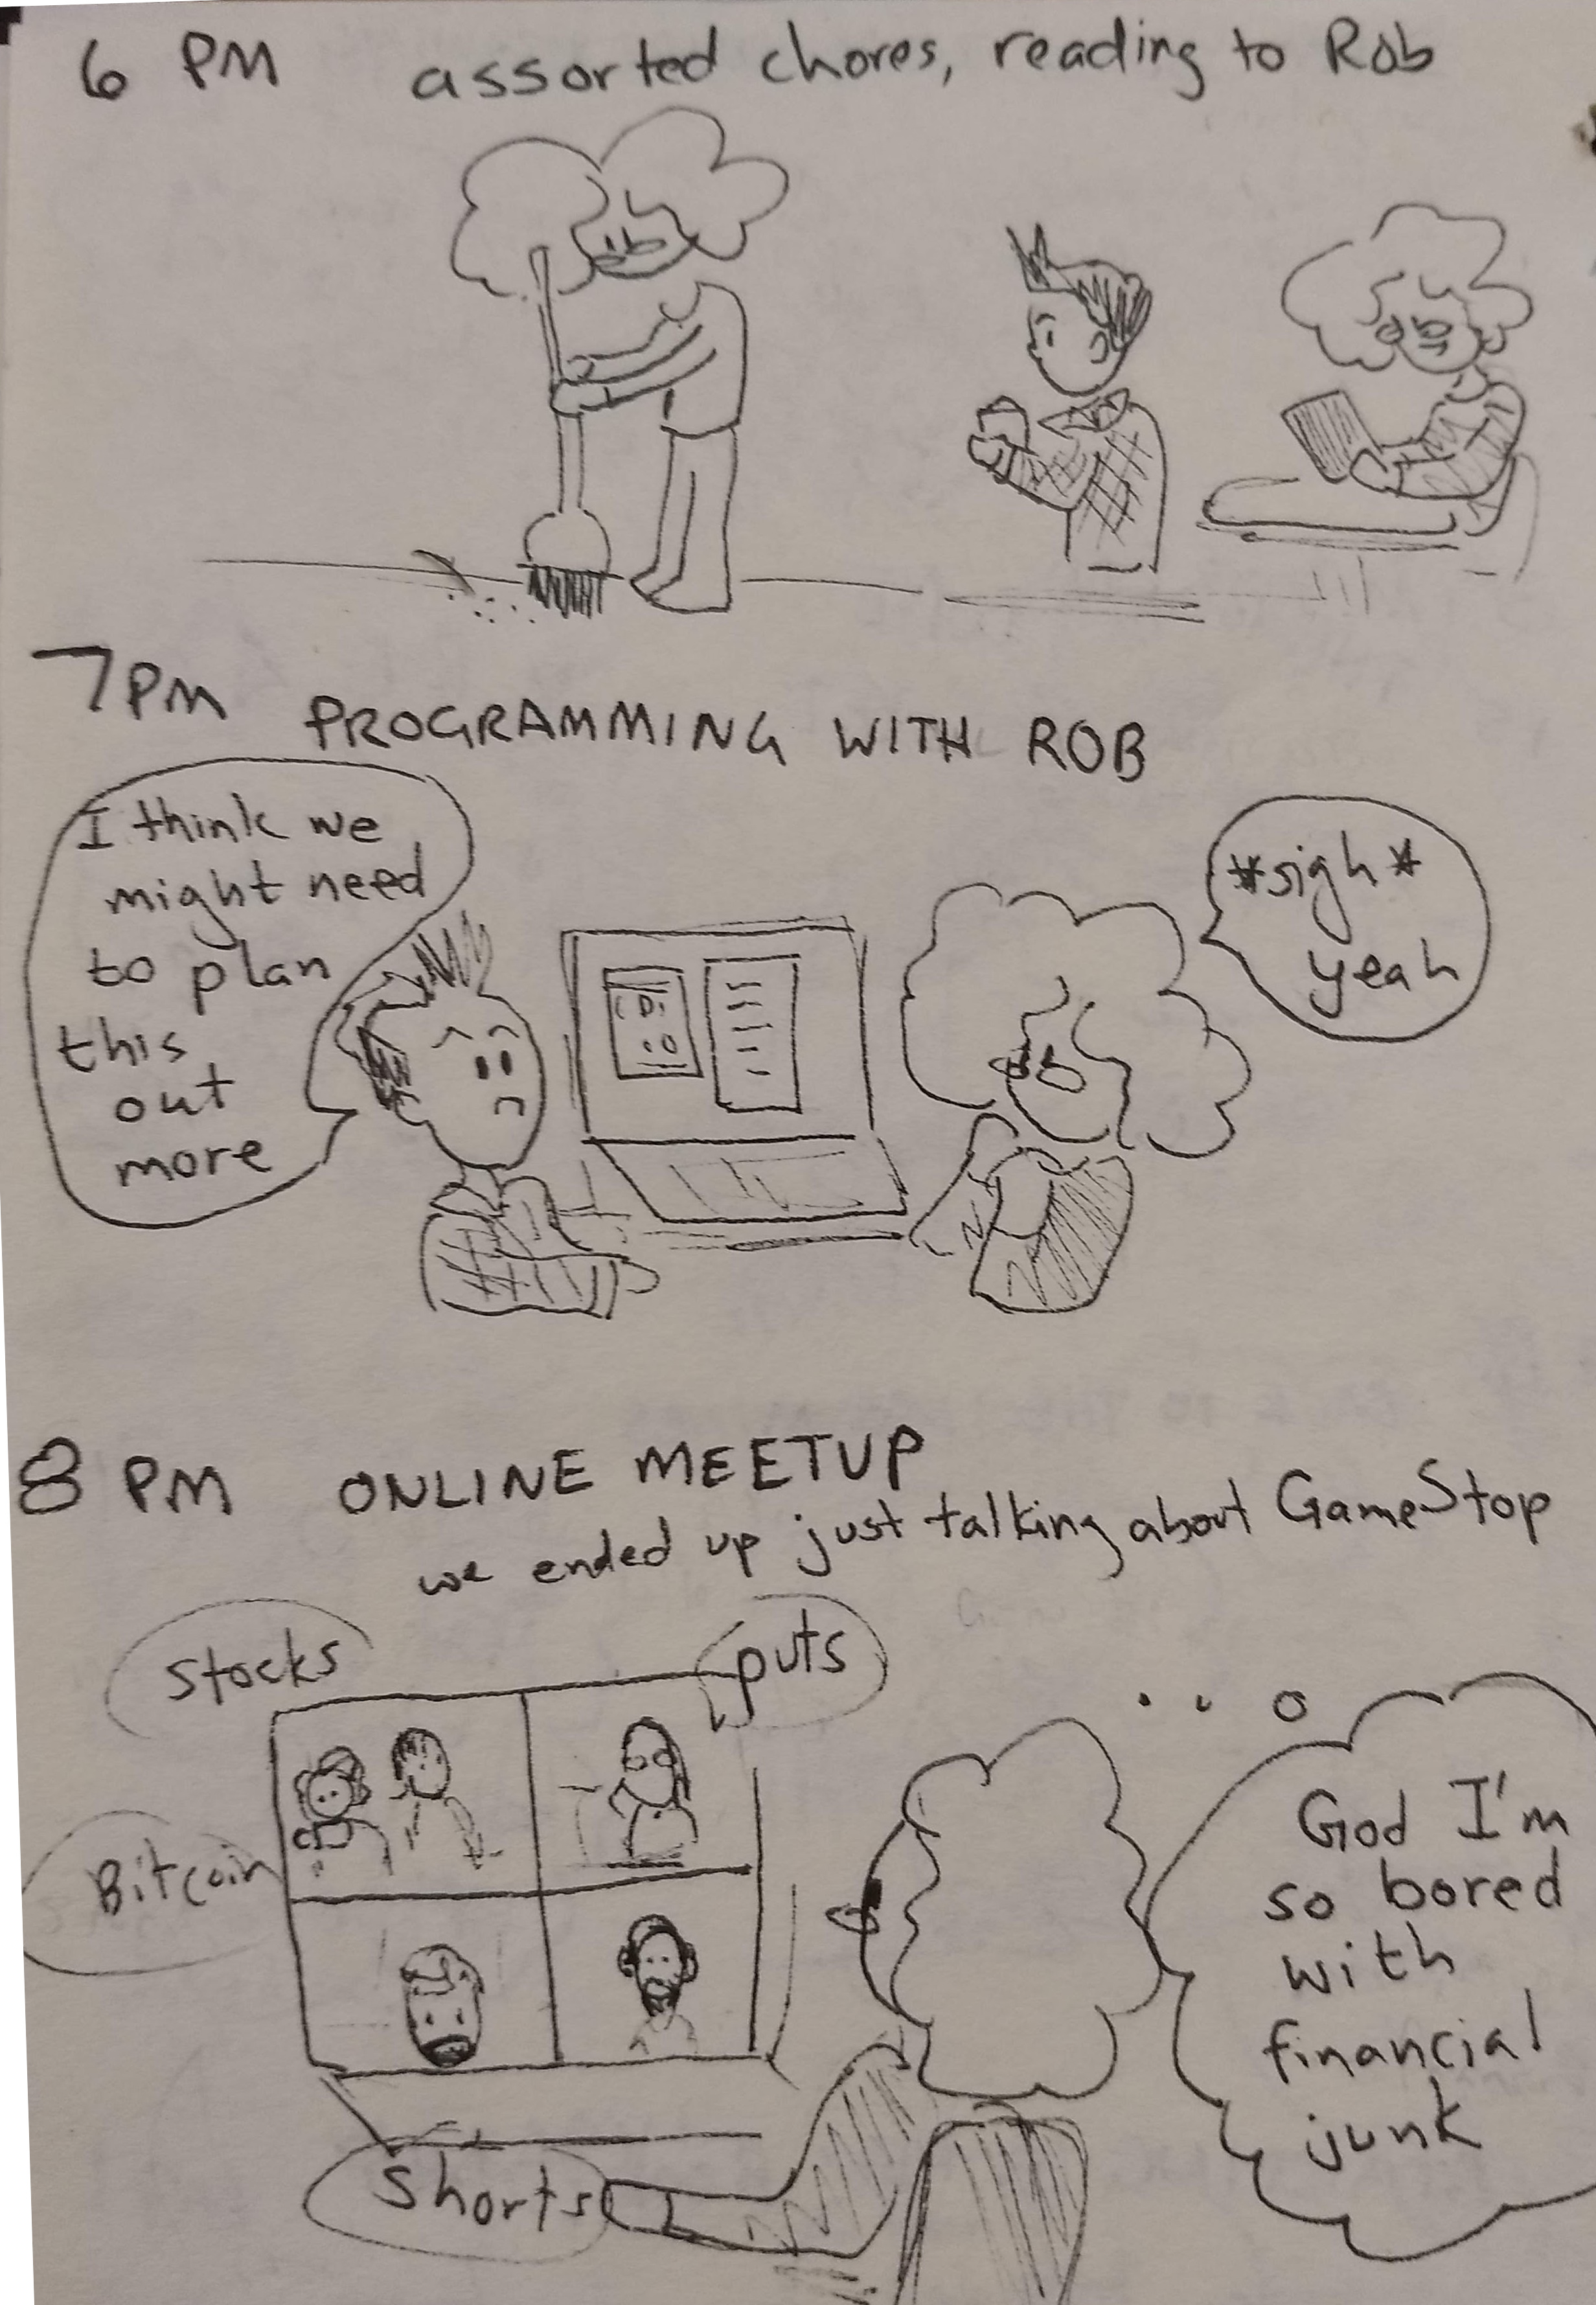 6 PM assorted chores, reading to Rob
7PM PROGRAMMING WITH ROB
I think we
might need
to plan
this
out
more
*sigh*
yeah
8 PM ONLINE MEETUP
we ended up just talking about GameStop
stocks
puts
Bitcoin
shorts
God I'm
so bored
with
financial
junk